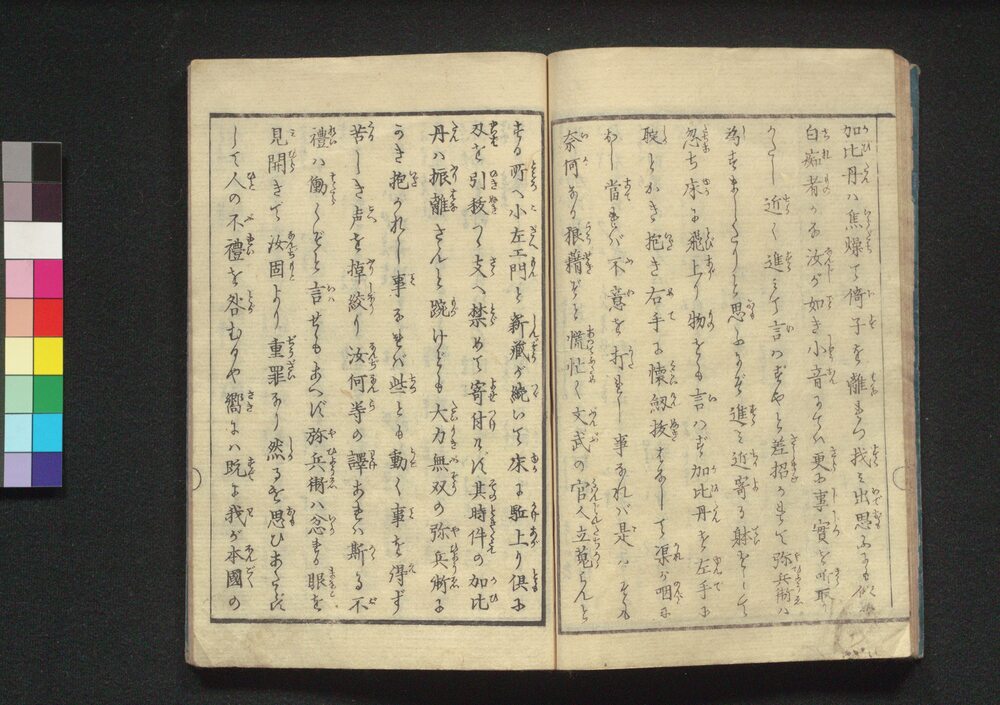 加比丹ハ焦燥て倚子を離れつ找み出思ふにも似
白痴者かな汝が如き小音にてハ更に事實を听取
がたし近く進みて言ハずやと差招かれて弥兵衞ハ
為すましたりと思ふにぞ進み近寄る躰をして
忽ち床に飛上り物をも言ハず加比丹を左手に
聢とかき抱き右手に懐剱抜はなして渠が咽に
おし當れバ不意を打れし事なれバ是ハそも
奈何なる狼藉ぞと慌忙く文武の官人立蒐らんと
する所へ小左エ門と新藏が続いて床に駈上り倶に
刄を引抜つ支へ禁めて寄付けず其時件の加比
丹ハ振離さんと踠けども大力無双の弥兵衞に
かき抱かれし事なれバ些とも動く事を得ず
苦しき声を掉絞り汝何等の譯あれバ斯る不
禮ハ働くぞと言せもあへず弥兵衞ハ忿れる眼を
見開きて汝固より重罪あり然るを思ひあたらず
して人の不禮を咎むるや嚮にハ既に我が本國の